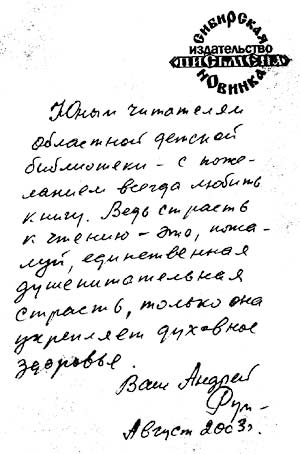 СИБИРСКАЯ
ИЗДАТЕЛЬСТВО
ПИСЬМЕНА
НОВИНКА
Юным читателям
областной детской
библиотеки – с поже-
ланием всегда любить
книгу. Ведь страсть
к чтению – это, пожа-
луй, единственная
душепитательная
страсть, только она
укрепляет духовное
здоровье.
Ваш Андрей
Август 2003г.